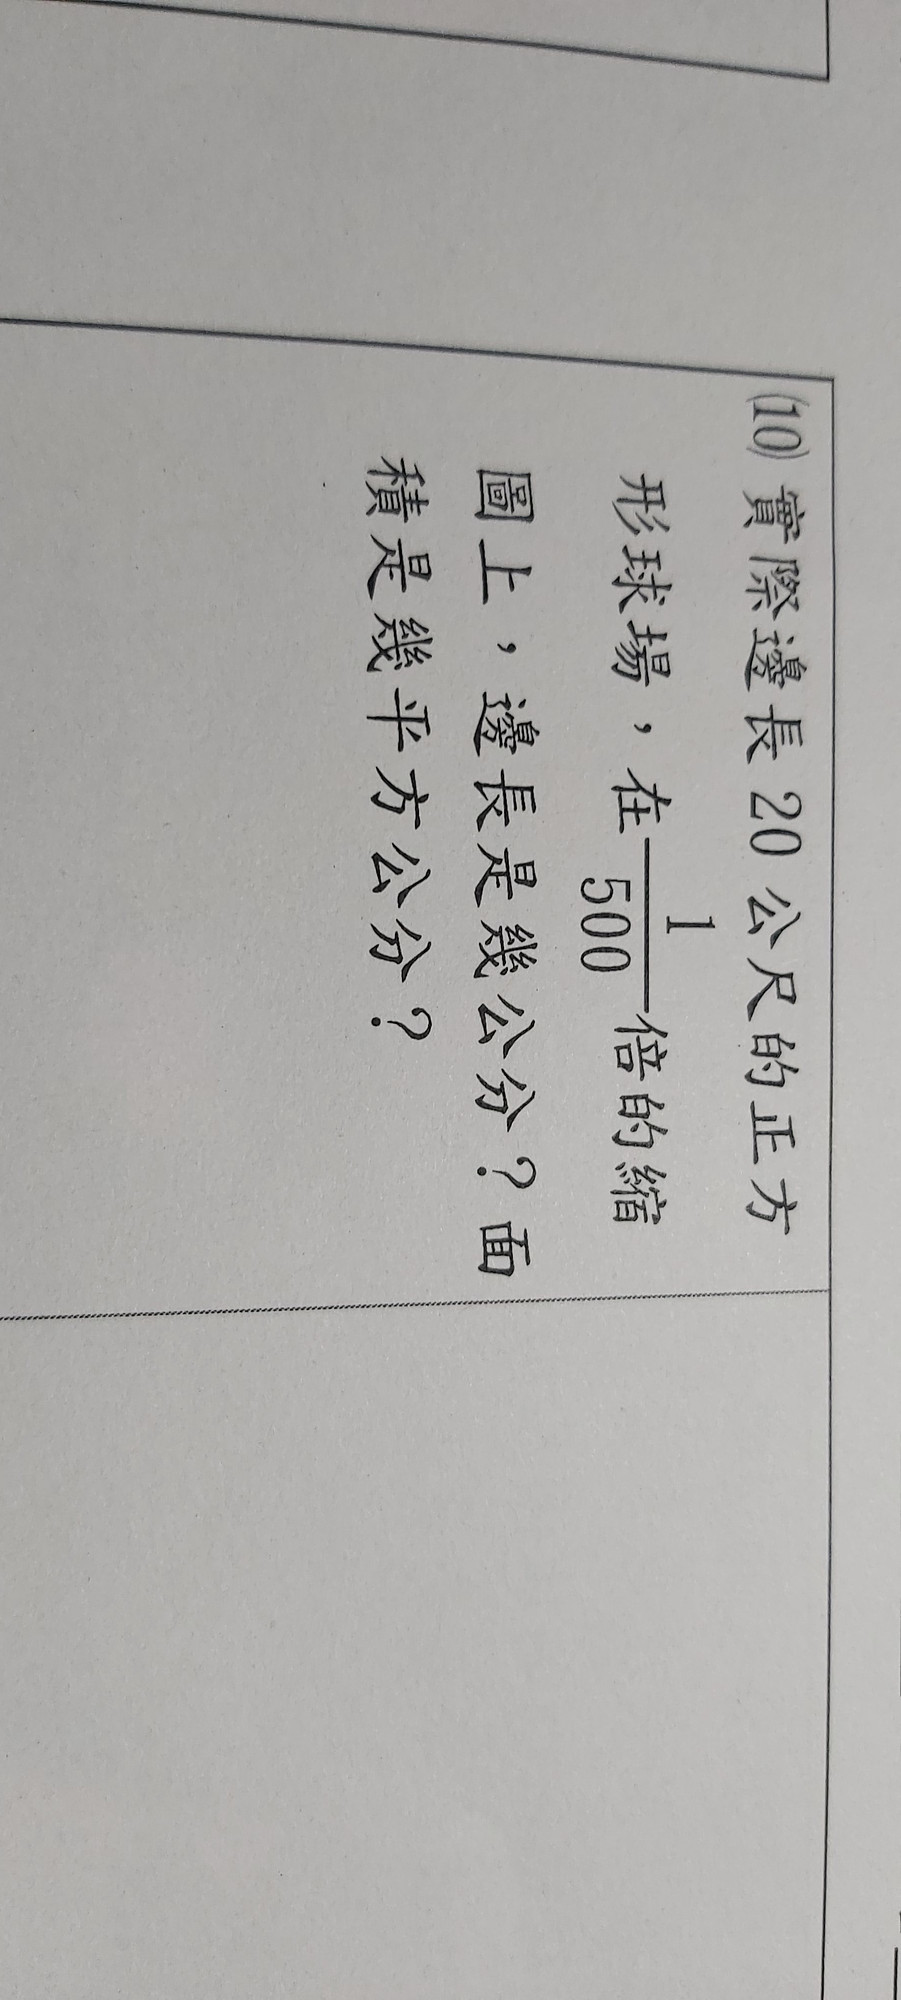 (10) 實際邊長 20 公尺的正方
形球場，在 1/500 倍的縮
圖上，邊長是幾公分？面
積是幾平方公分？